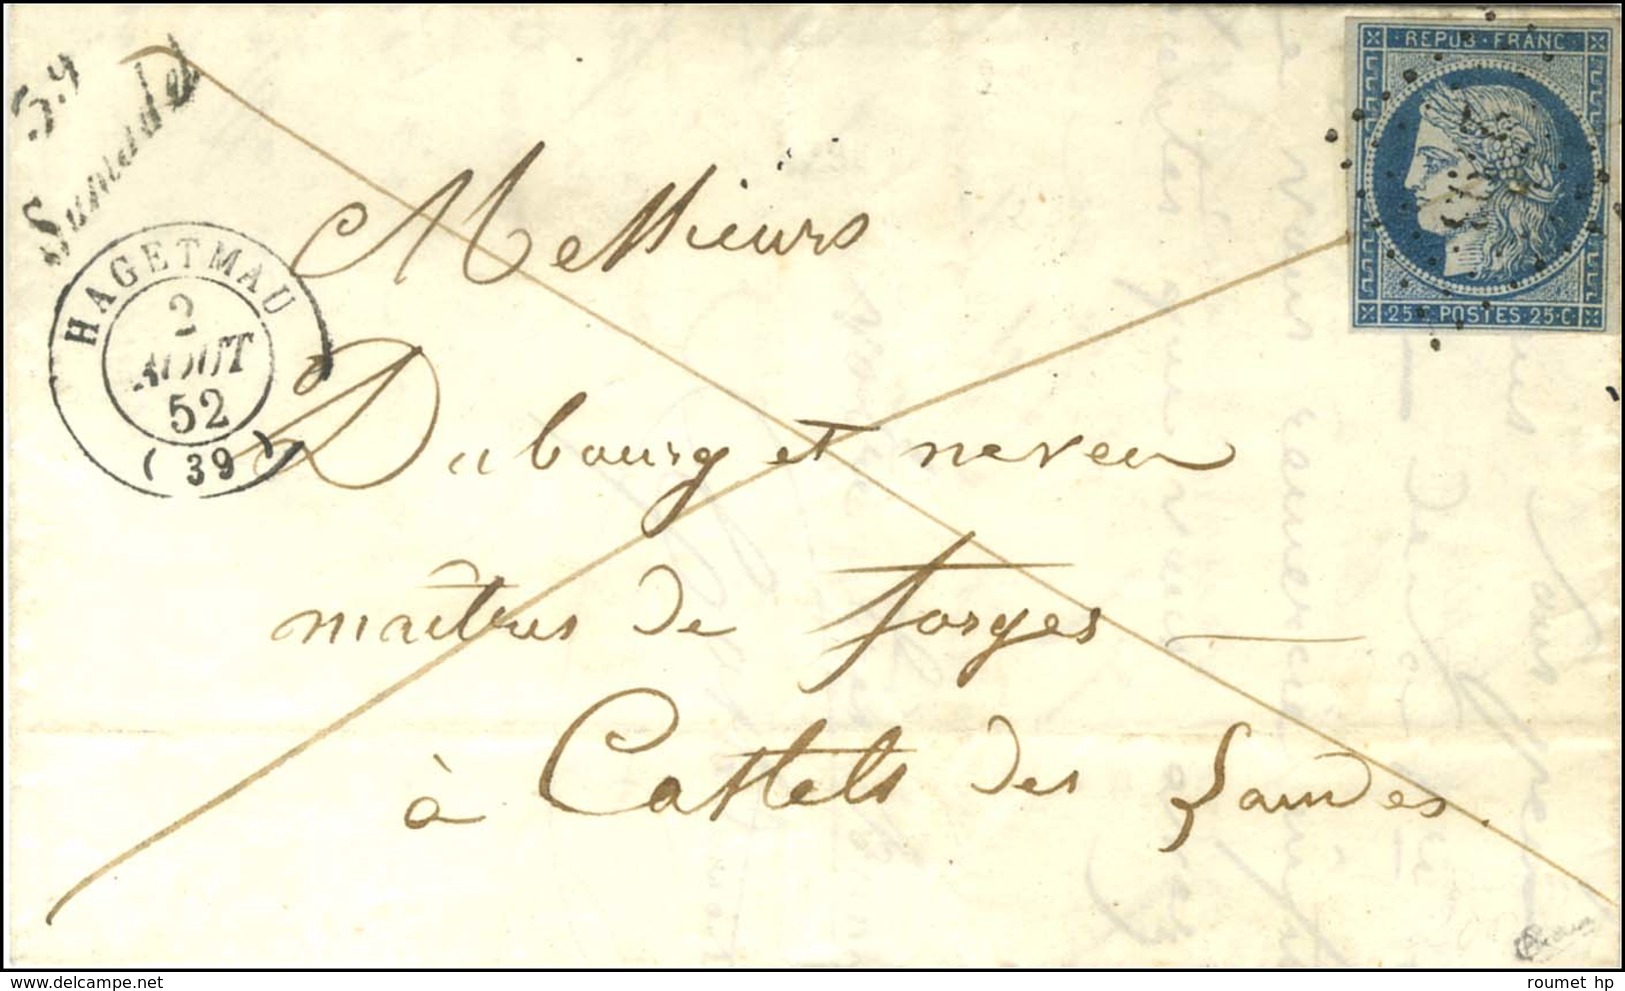 39
Samadet
HAGETMAU
2
AOUT
52
(39)
REPUB·FRANC
25c POSTES 25c
Messieurs
Dubourg et neveu
maîtres de forges
à Castets des Landes.
roumet hp